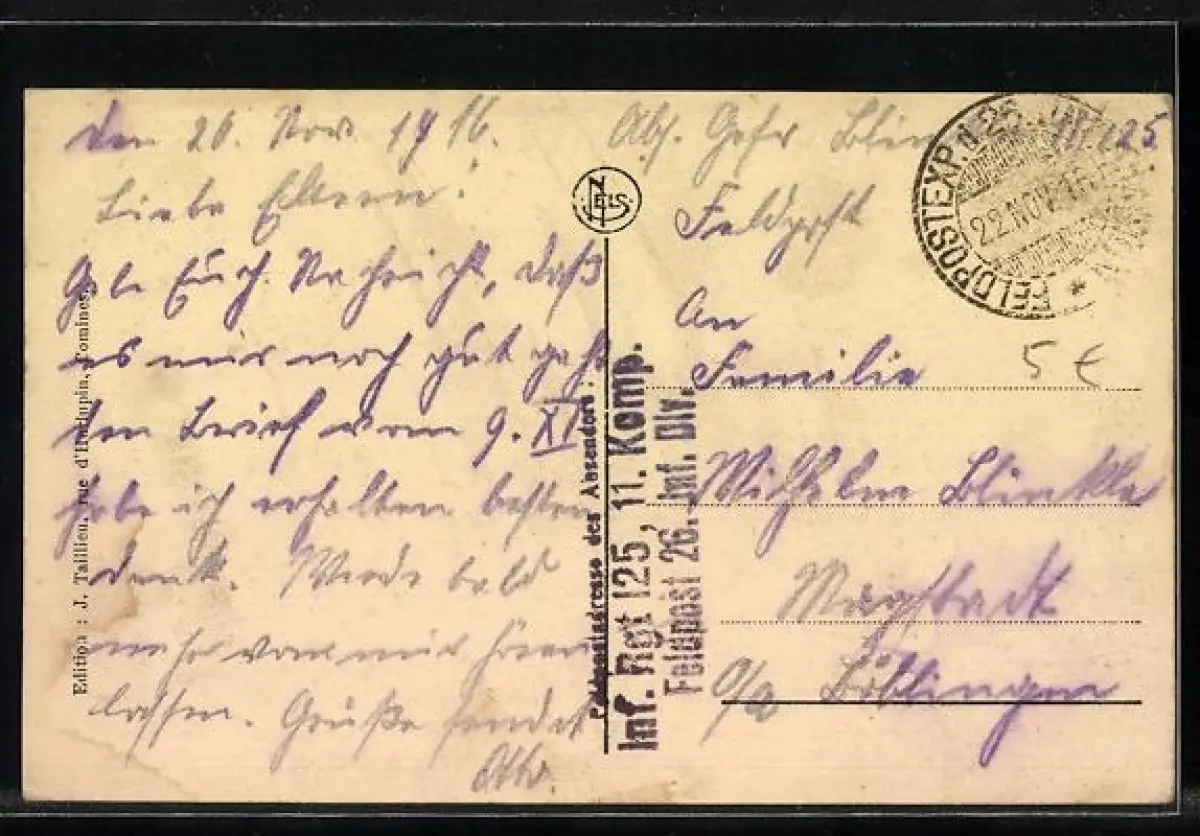 den 20. Nov. 1916.
Liebe Eltern!
Gebe Euch Nachricht, daß
es mir noch gut geht
den Brief vom 9. XI
habe ich erhalten besten
dank. Werde bald
mehr von mir hören
lassen. Grüße sendet
Abs. Gefr. 125
Feldpost
An
Familie
Wilhelm Blinkle
Magstadt
O/A Böblingen
NELS
FELDPOSTEXP. d. 26.
22. NOV. 16
5 €
Edition : J. Taillieu, rue d'Hurlupin, Comines.
Feldpostadresse des Absenders:
Inf. Rgt 125, 11. Komp.
Feldpost 26. Inf. Div.